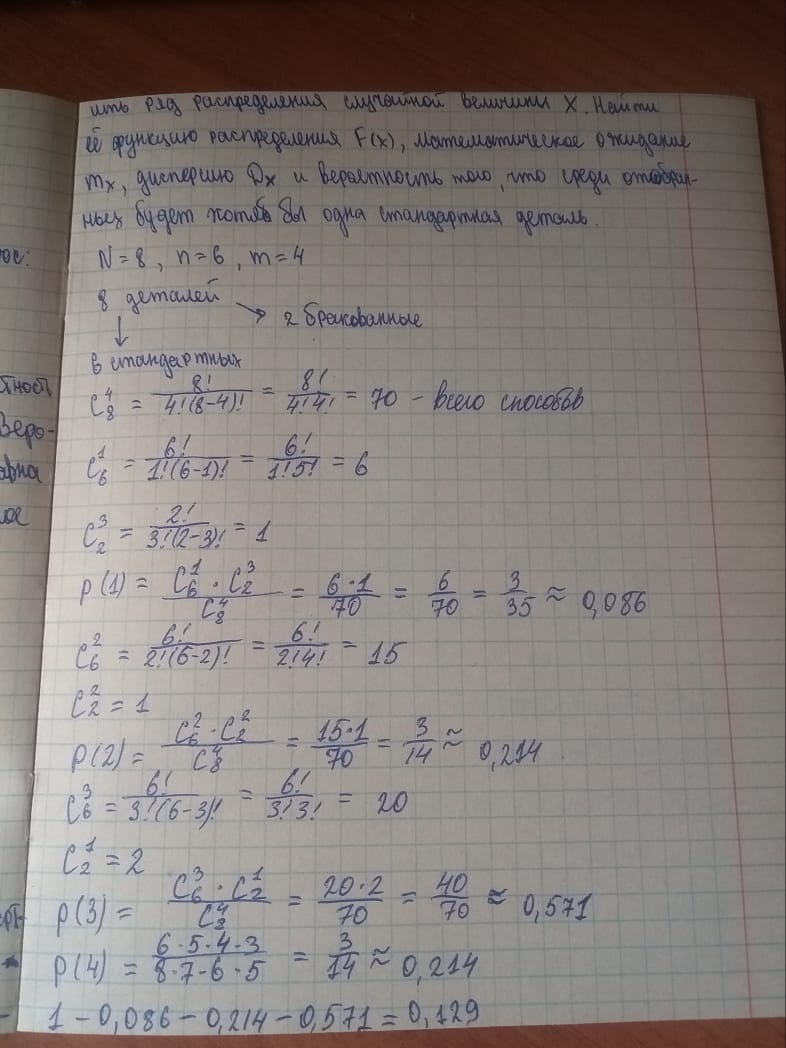 ить ряд распределения случайной величины X. Найти
её функцию распределения F(x), математическое ожидание
mx, дисперсию Dx и вероятность того, что среди отобран-
ных будет хотя бы одна стандартная деталь.
N=8, n=6, m=4
ос:
8 деталей
2 бракованные
6 стандартных
C_8^4 = 8!/4!(8-4)! = 8!/4!4! = 70 - всего способов
тность
Веро-
C_6^1 = 6!/1!(6-1)! = 6!/1!5! = 6
авна
C_2^3 = 2!/3!(2-3)! = 1
P(1) = C_6^1 · C_2^3/C_8^4 = 6·1/70 = 6/70 = 3/35 ≈ 0,086
C_6^2 = 6!/2!(6-2)! = 6!/2!4! = 15
C_2^2 = 1
P(2) = C_6^2 · C_2^2/C_8^4 = 15·1/70 = 3/14 ≈ 0,214
C_6^3 = 6!/3!(6-3)! = 6!/3!3! = 20
C_2^1 = 2
P(3) = C_6^3 · C_2^1/C_8^4 = 20·2/70 = 40/70 ≈ 0,571
P(4) = 6·5·4·3/8·7·6·5 = 3/14 ≈ 0,214
1 - 0,086 - 0,214 - 0,571 = 0,129